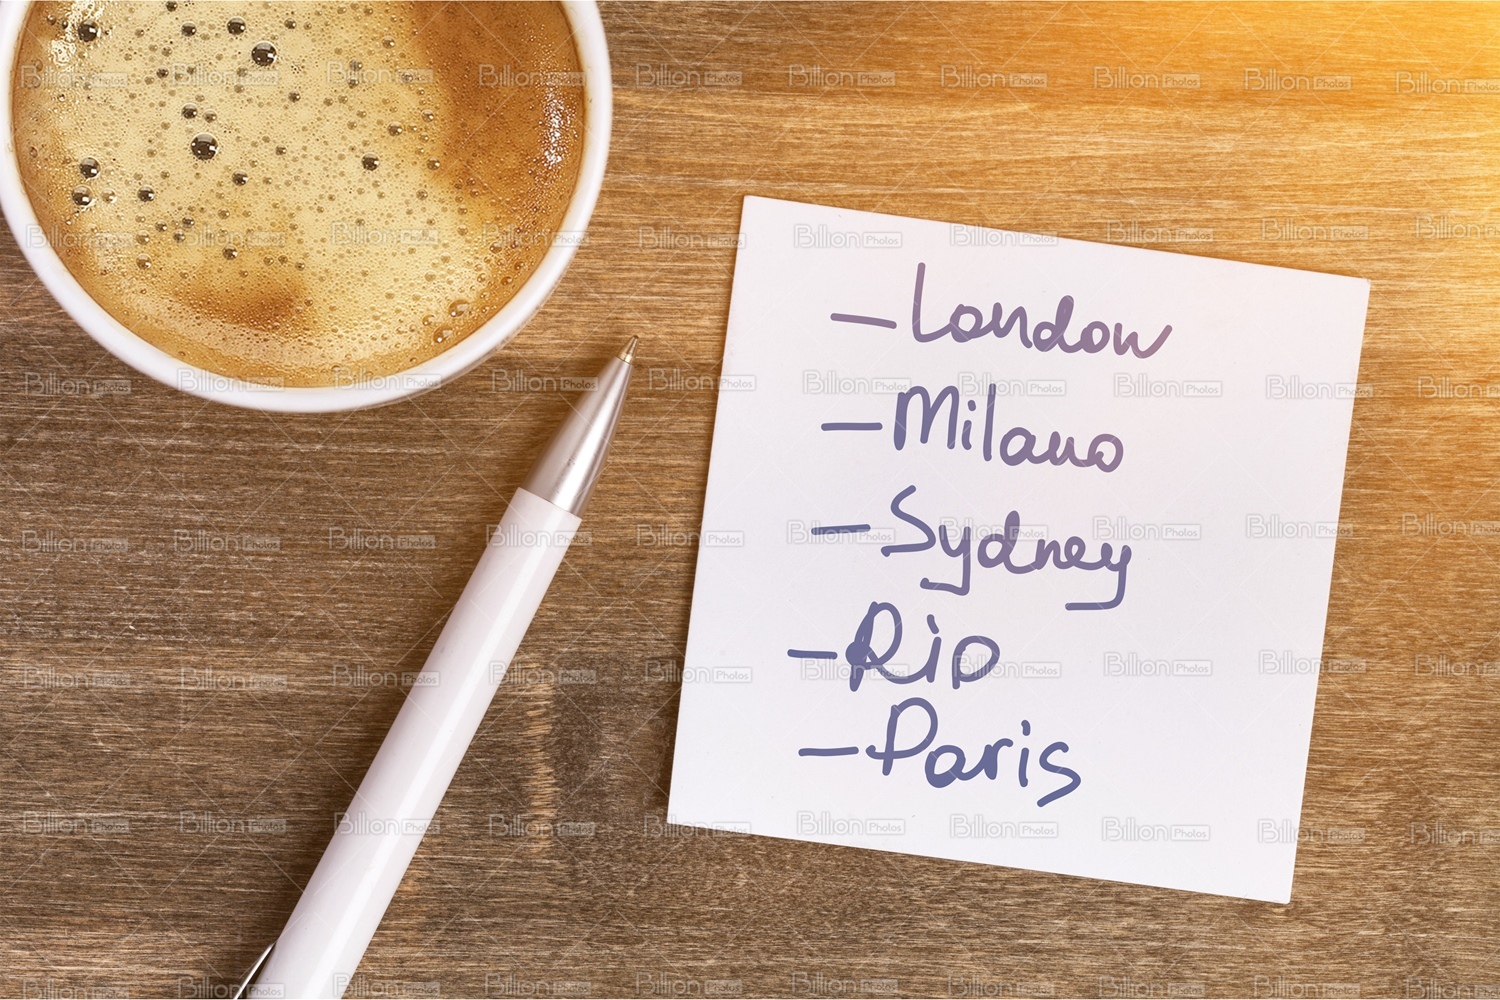 – London
– Milano
– Sydney
– Rio
– Paris
Billion Photos